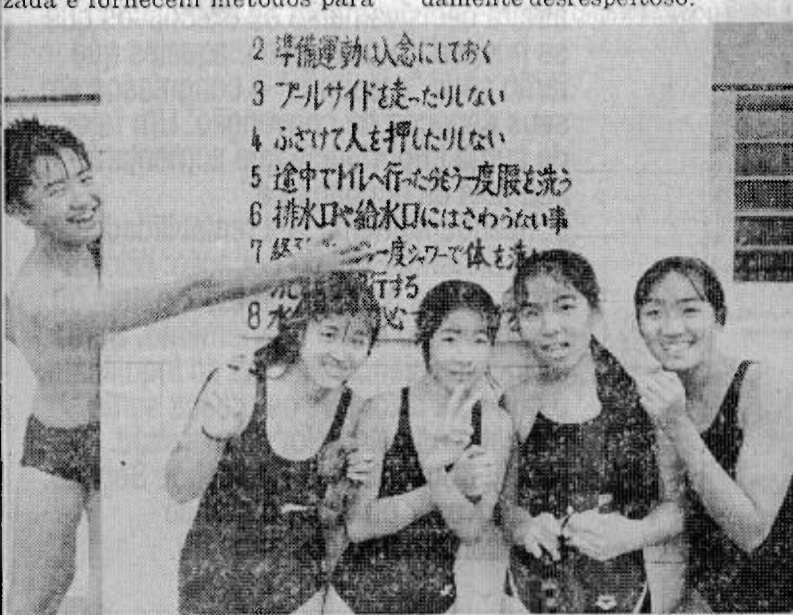 zada e fornecem métodos para
damente desrespeitoso.
2 準備運動は入念にしておく
3 プールサイドを走ったりしない
4 ふざけて人を押したりしない
5 途中でトイレへ行ったらもう一度腰を洗う
6 排水口や給水口にはさわらない事
7 一度シャワーで体を
行する
8 水 心